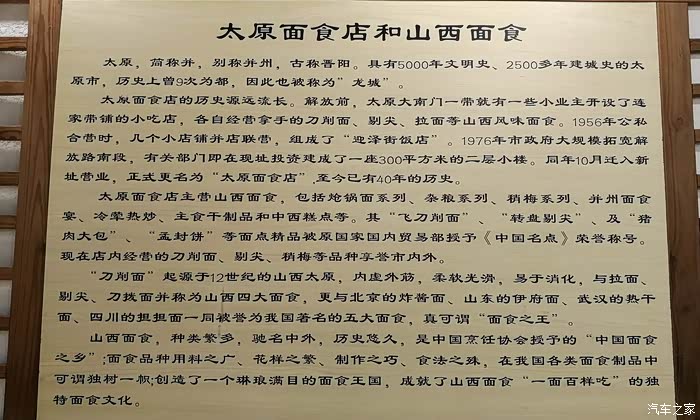 太原面食店和山西面食
太原，简称并，别称并州，古称晋阳。具有5000年文明史、2500多年建城史的太
原市，历史上曾9次为都，因此也被称为"龙城"。
太原面食店的历史源远流长。解放前，太原大南门一带就有一些小业主开设了连
家带铺的小吃店，各自经营拿手的刀削面、剔尖、拉面等山西风味面食。1956年公私
合营时，几个小店铺并店联营，组成了"迎泽街饭店"。1976年市政府大规模拓宽解
放路南段，有关部门即在现址投资建成了一座300平方米的二层小楼。同年10月迁入新
址营业，正式更名为"太原面食店",至今已有40年的历史。
太原面食店主营山西面食，包括炝锅面系列、杂粮系列、稍梅系列、并州面食
宴、冷荤热炒、主食干制品和中西糕点等。其"飞刀削面"、"转盘剔尖"、及"猪
肉大包"、"孟封饼"等面点精品被原国家国内贸易部授予《中国名点》荣誉称号。
现在店内经营的刀削面、剔尖、稍梅等品种享誉市内外。
"刀削面"起源于12世纪的山西太原，内虚外筋，柔软光滑，易于消化，与拉面、
剔尖、刀拨面并称为山西四大面食，更与北京的炸酱面、山东的伊府面、武汉的热干
面、四川的担担面一同被誉为我国著名的五大面食，真可谓"面食之王"。
山西面食，种类繁多，驰名中外，历史悠久，是中国烹饪协会授予的"中国面食
之乡";面食品种用料之广、花样之繁、制作之巧、食法之殊，在我国各类面食制品中
可谓独树一帜;创造了一个琳琅满目的面食王国，成就了山西面食"一面百样吃"的独
特面食文化。
汽车之家